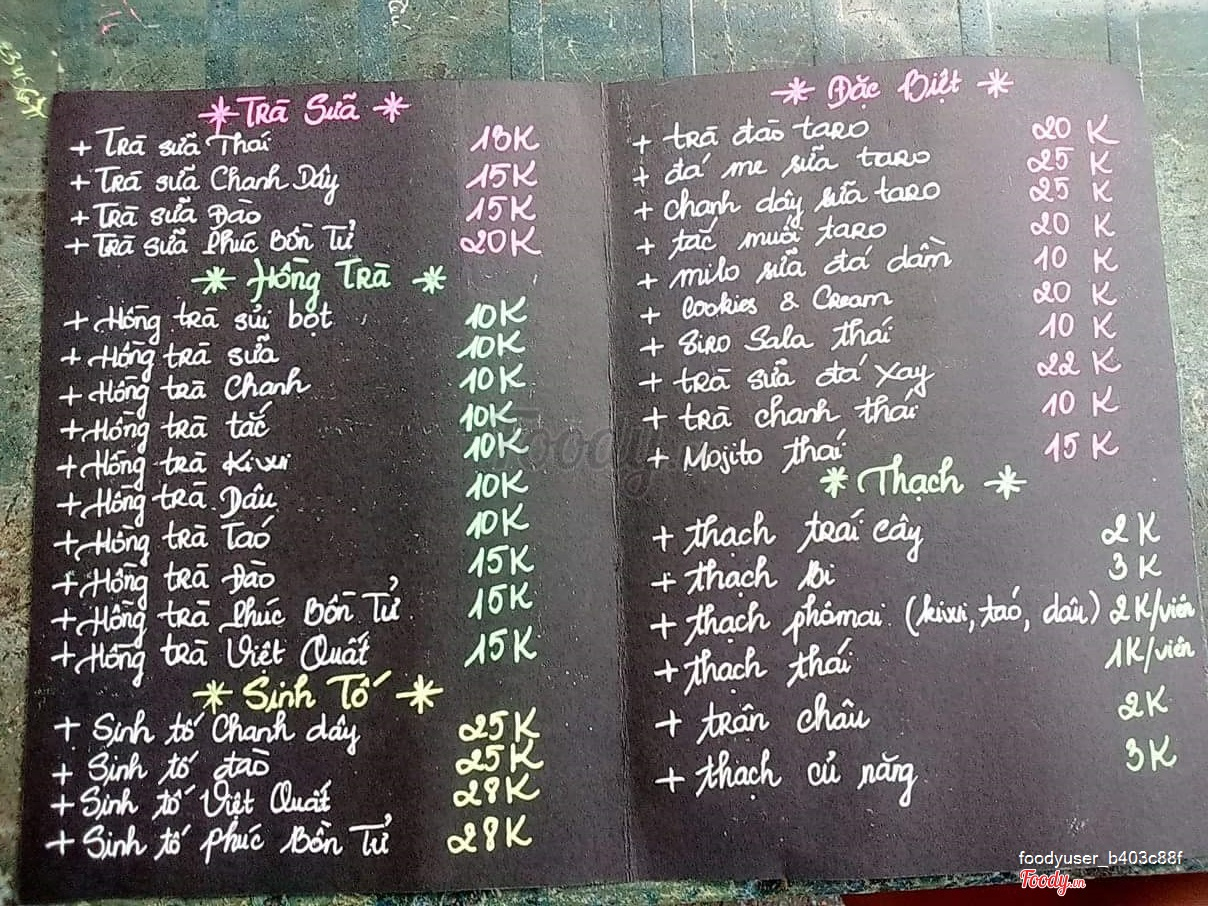 Trà Sữa
+ Trà sữa Thái 18K
+ Trà sữa Chanh Dây 15K
+ Trà sữa Đào 15K
+ Trà sữa Phúc Bồn Tử 20K
Hồng Trà
+ Hồng trà sủi bọt 10K
+ Hồng trà sữa 10K
+ Hồng trà Chanh 10K
+ Hồng trà tắc 10K
+ Hồng trà Kiwi 10K
+ Hồng trà Dâu 10K
+ Hồng trà Táo 10K
+ Hồng trà Đào 15K
+ Hồng trà Phúc Bồn Tử 15K
+ Hồng trà Việt Quất 15K
Sinh Tố
+ Sinh tố Chanh dây 25K
+ Sinh tố đào 25K
+ Sinh tố Việt Quất 28K
+ Sinh tố phúc Bồn Tử 28K
Đặc Biệt
+ trà đào taro 20 K
+ đá me sữa taro 25 K
+ chanh dây sữa taro 25 K
+ tắc muối taro 20 K
+ milo sữa đá dầm 10 K
+ Cookies & Cream 20 K
+ Siro Sala thái 10 K
+ trà sữa đá xay 22 K
+ trà chanh thái 10 K
+ Mojito thái 15 K
Thạch
+ thạch trái cây 2K
+ thạch bi 3K
+ thạch phômai (kiwi, táo, dâu) 2K/viên
+ thạch thái 1K/viên
+ trân châu 2K
+ thạch củ năng 3K
foodyuser_b403c88f
Foody.vn